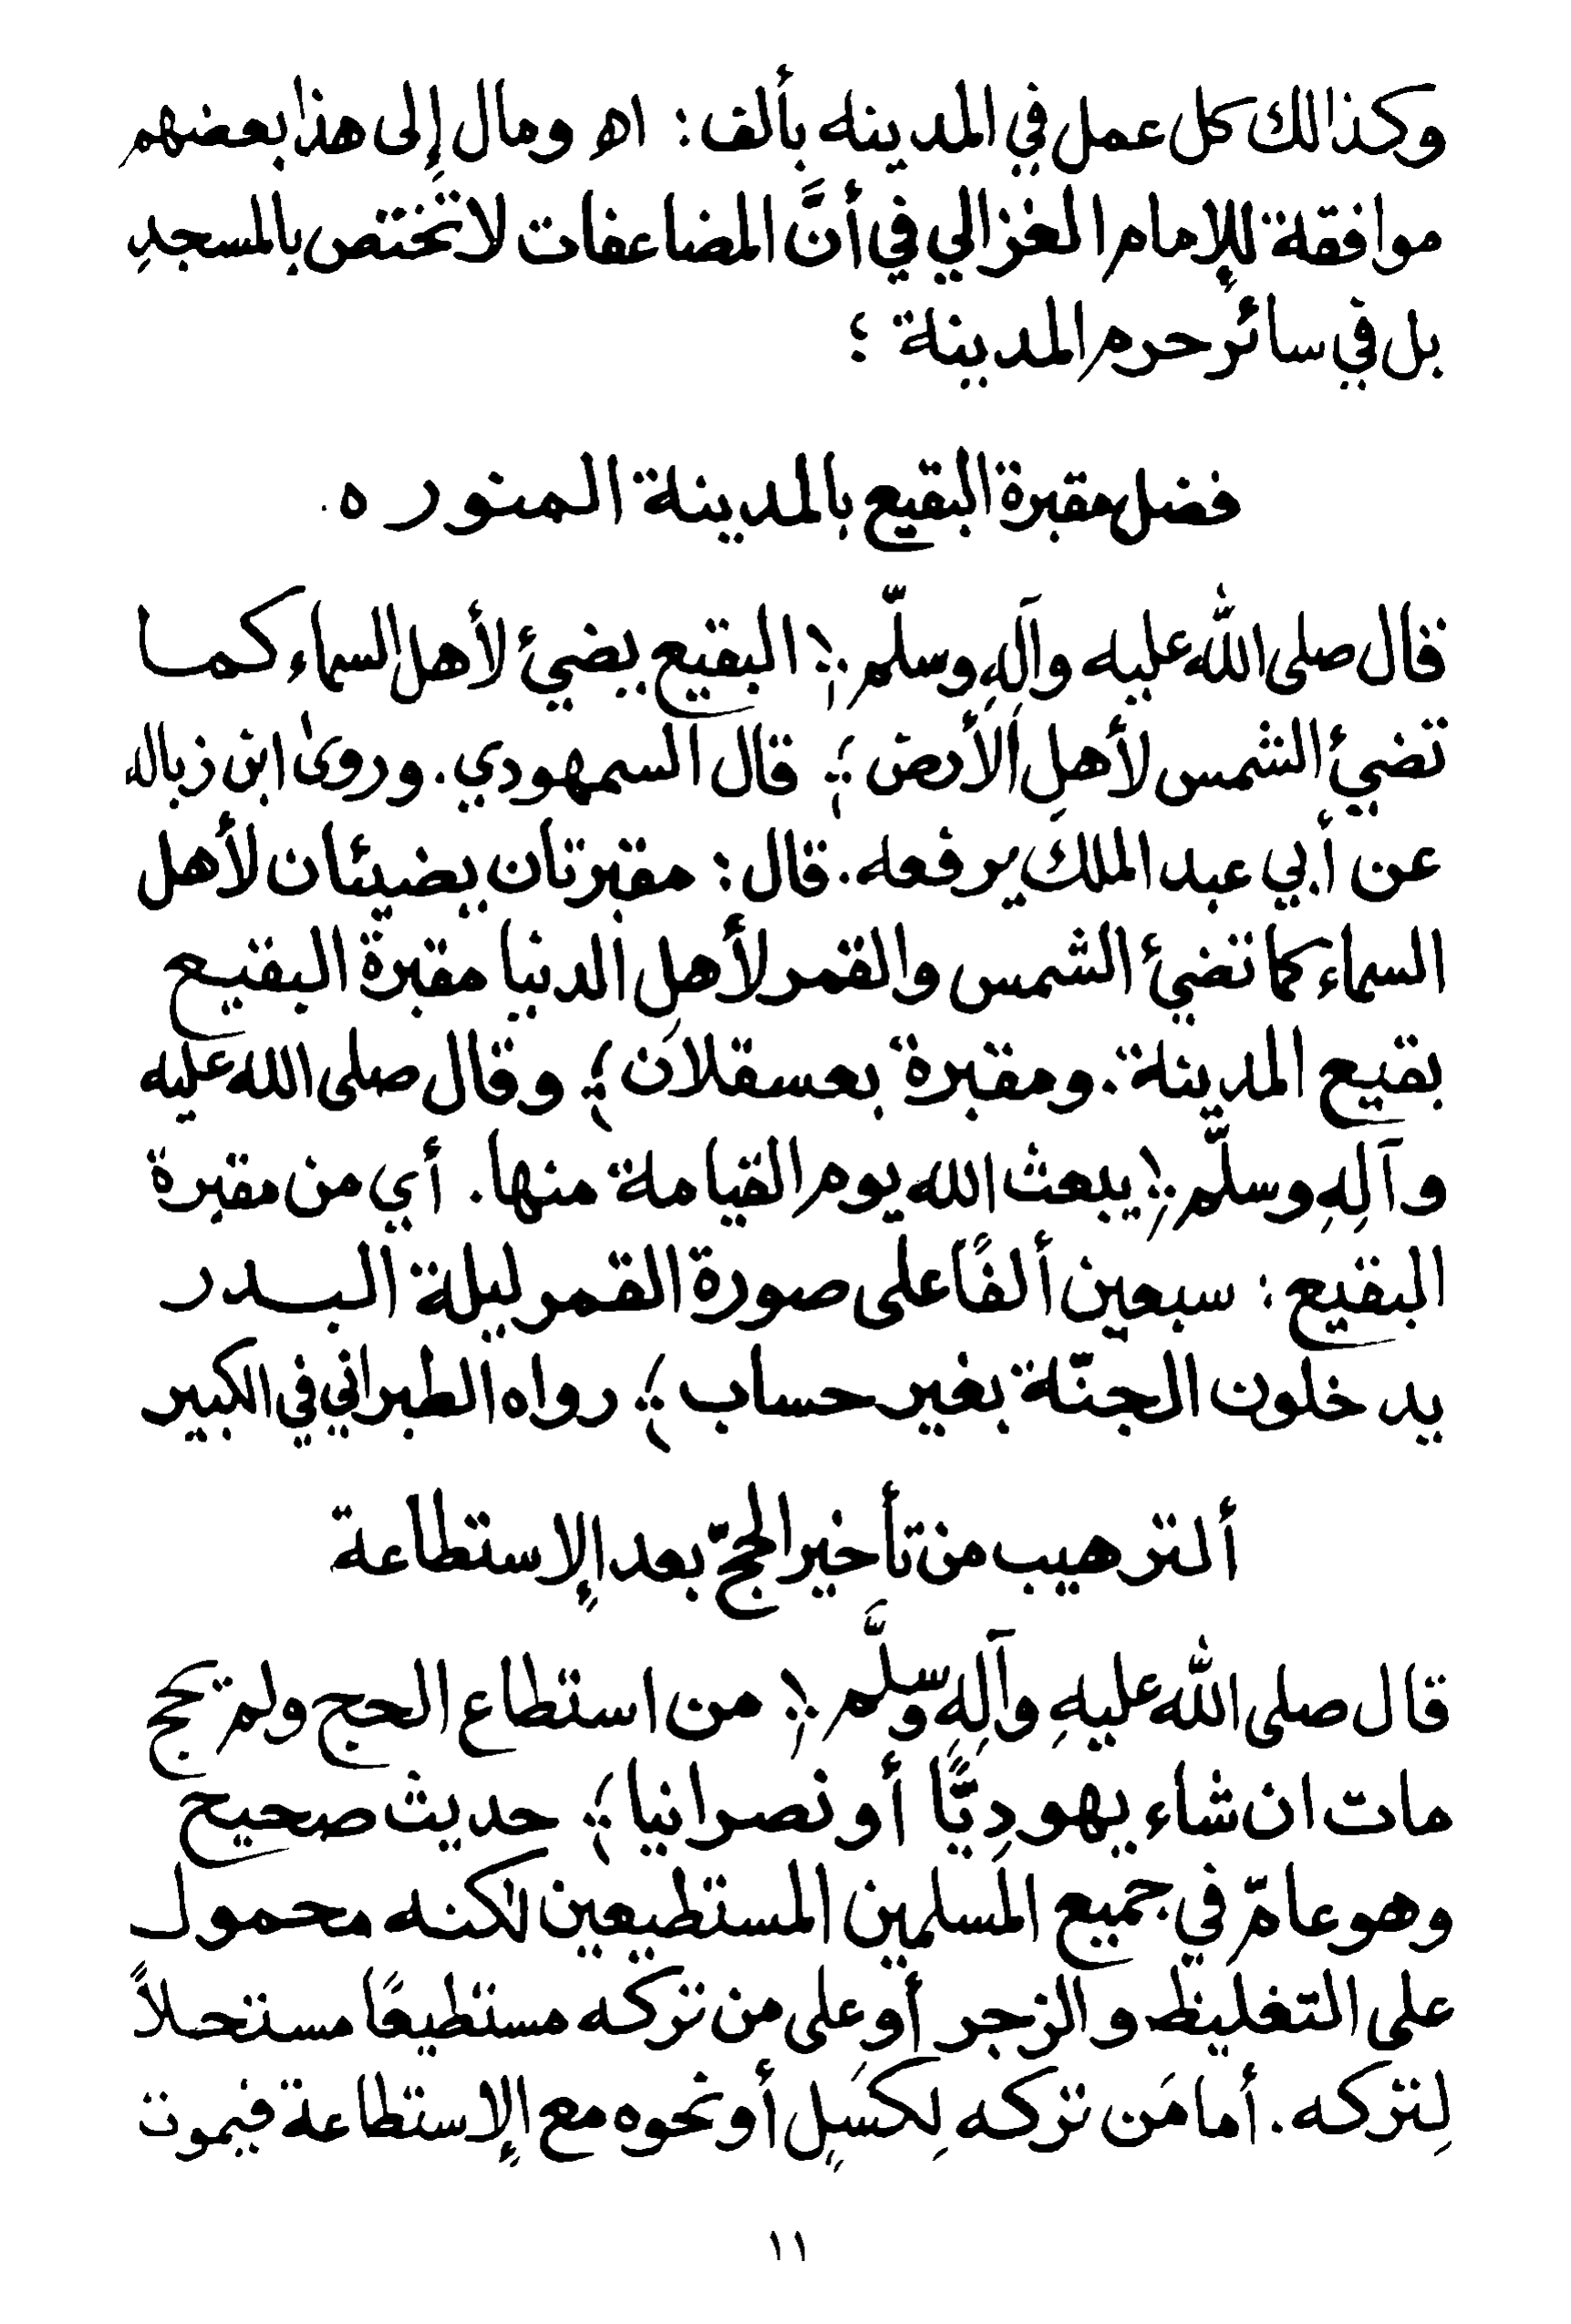 وكذالك كل عمل في المدينه بألف: اه ومال إلى هذا بعضهم
موافقة للإمام الغزالي في أنَّ المضاعفات لا تختص بالمسجدِ
بل في سائر حرم المدينة ؛
فضل مقبرة البقيع بالمدينة المنوره.
قال صلى الله عليه وآلهِ وسلّم ﴿ البقيع يضيئ لأهل السماء كما
تضيئ الشمس لأهلِ الأرض ﴾ قال السمهودي. وروى ابن زباله
عن أبي عبد الملك يرفعه. قال: مقبرتان يضيئان لأهل
السماء كما تضيئ الشمس والقمر لأهل الدنيا مقبرة البقيع
بقيع المدينة. ومقبرة بعسقلان ﴾ وقال صلى الله عليه
وآلِهِ وسلّم ﴿ يبعث الله يوم القيامة منها. أي من مقبرة
البقيع: سبعين ألفًا على صورة القمر ليلة البدر
يدخلون الجنّة بغير حساب ﴾ رواه الطبراني في الكبير
ألترهيب من تأخير الحجّ بعد الإستطاعة
قال صلى الله عليهِ وآلِهِ وسلَّم ﴿ من استطاع الحج ولم يحج
مات ان شاء يهودِيًّا أو نصرانيا ﴾ حديث صحيح
وهو عامّ في جميع المسلمين المستطيعين لكنه محمول
على التغليظ والزجر أو على من تركه مستطيعًا مستحلاً
لِتركه. أما مَن تركه لِكسَلٍ أو نحوه مع الإستطاعة فيموت
١١